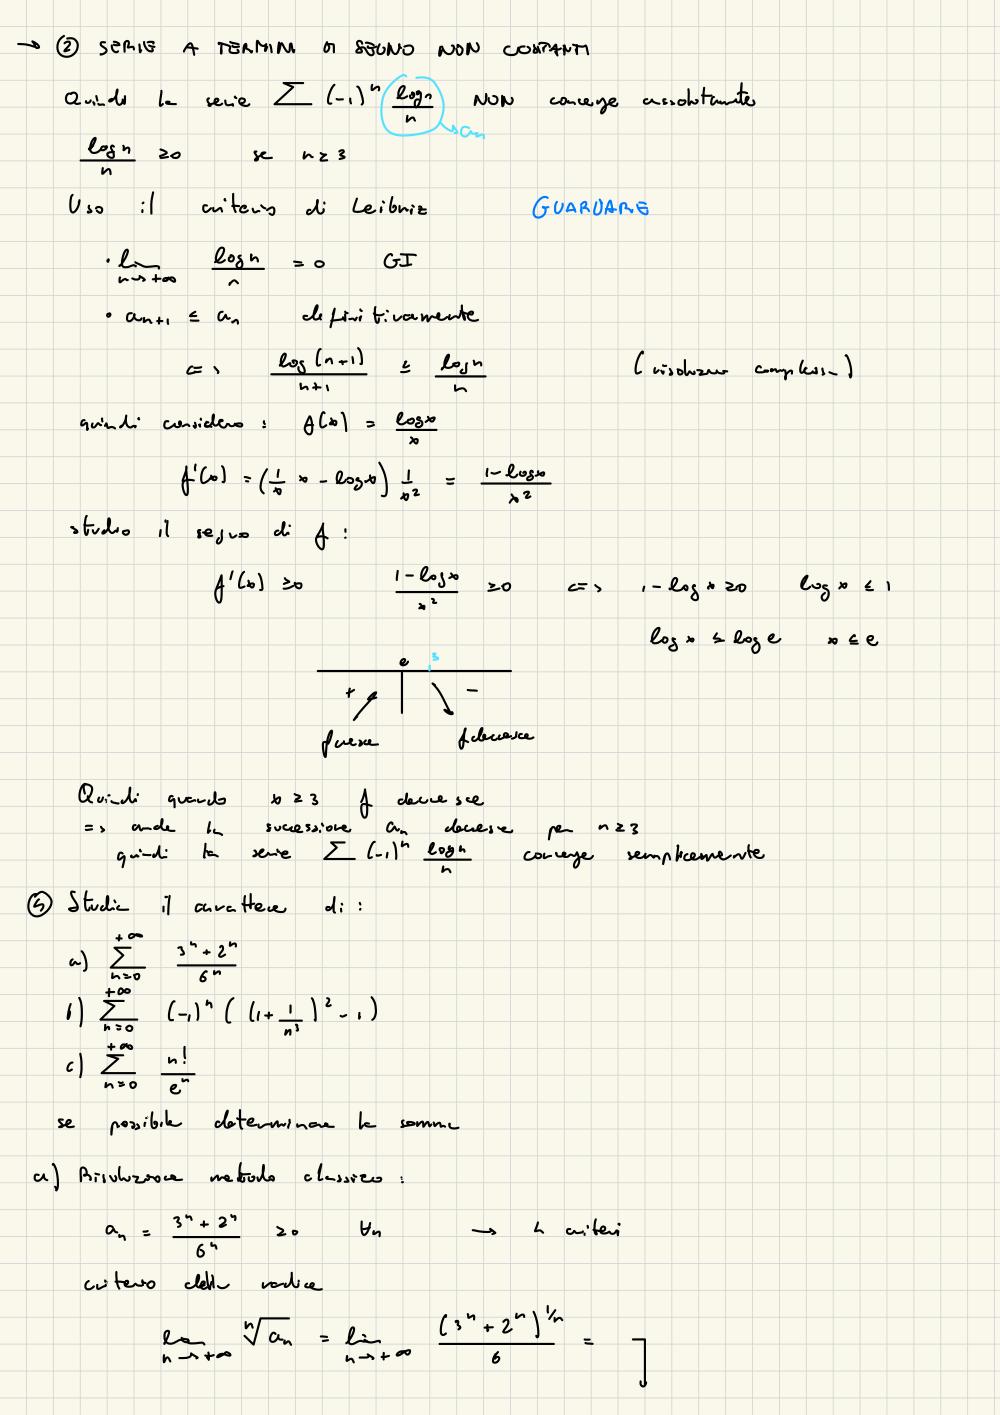 → ② SERIE A TERMINI DI SEGNO NON COSTANTI
Quindi la serie ∑ (-1)^n log n / n NON converge assolutamente
→ a_n
log n / n ≥ 0 se n ≥ 3
Uso il criterio di Leibniz GUARDARE
• lim n→+∞ log n / n = 0 GI
• a_{n+1} ≤ a_n definitivamente
<=> log (n+1) / n+1 ≤ log n / n (risoluzione complessa)
quindi considero : f(x) = log x / x
f'(x) = (1/x x - log x) 1/x² = 1 - log x / x²
studio il segno di f :
f'(x) ≥ 0 1 - log x / x² ≥ 0 <=> 1 - log x ≥ 0 log x ≤ 1
log x ≤ log e x ≤ e
e 3
+ -
f cresce f decresce
Quindi quando x ≥ 3 f decresce
=> anche la successione a_n decresce per n ≥ 3
quindi la serie ∑ (-1)^n log n / n converge semplicemente
⑤ Studia il carattere di :
a) ∑ n=0 +∞ 3^n + 2^n / 6^n
b) ∑ n=0 +∞ (-1)^n ( (1 + 1/n³)² - 1)
c) ∑ n=0 +∞ n! / e^n
se possibile determinare la somma
a) Risoluzione metodo classico :
a_n = 3^n + 2^n / 6^n ≥ 0 ∀n → 4 criteri
criterio della radice
lim n→+∞ ⁿ√a_n = lim n→+∞ (3^n + 2^n)^{1/n} / 6 =